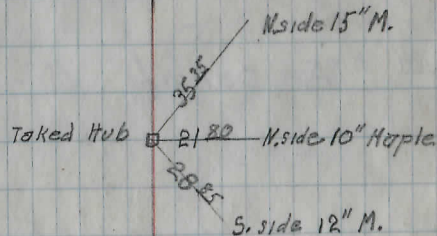 N.side 15" M.
35 35
Taked Hub 21 80 N.side 10" Maple
28 85
S. side 12" M.